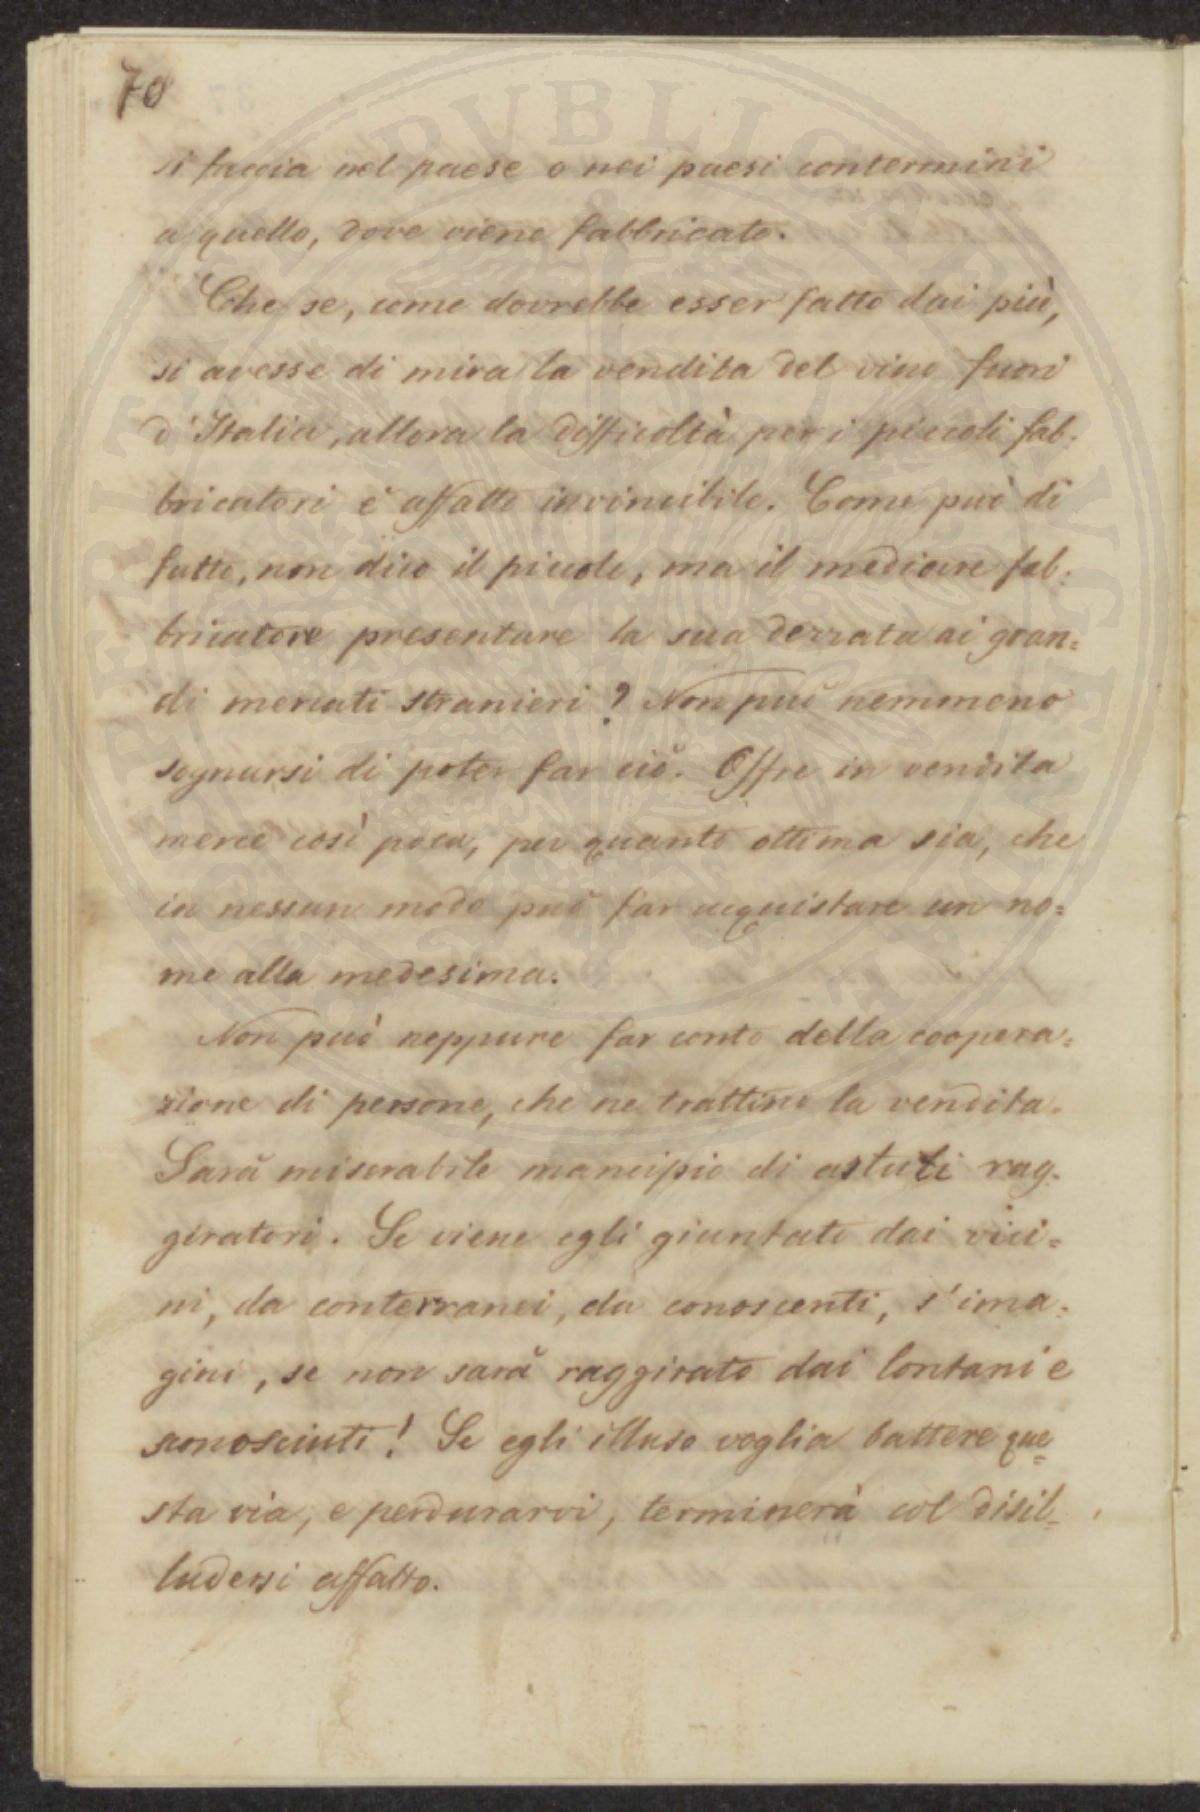 70
si faccia nel paese o nei paesi contermini
a quello, dove viene fabbricato.
Che se, come dovrebbe esser fatto dai più,
si avesse di mira la vendita del vino fuori
d'Italia, allora la difficoltà per i piccoli fab=
bricatori è affatto invincibile. Come può di
fatto, non dico il piccolo, ma il mediocre fab=
bricatore presentare la sua derrata ai gran=
di mercati stranieri? Non può nemmeno
sognarsi di poter far ciò. Offre in vendita
merce così poca, per quanto ottima sia, che
in nessun modo può far acquistare un no=
me alla medesima.
Non può neppure far conto della coopera=
zione di persone, che ne trattino la vendita.
Sarà miserabile mancipio di astuti rag=
giratori. Se viene egli giuntato dai vici=
ni, da conterranei, da conoscenti, s'ima=
gini, se non sarà raggirato dai lontani e
sconosciuti! Se egli illuso voglia battere que=
sta via, e perdurarvi, terminerà col disil=
ludersi affatto.